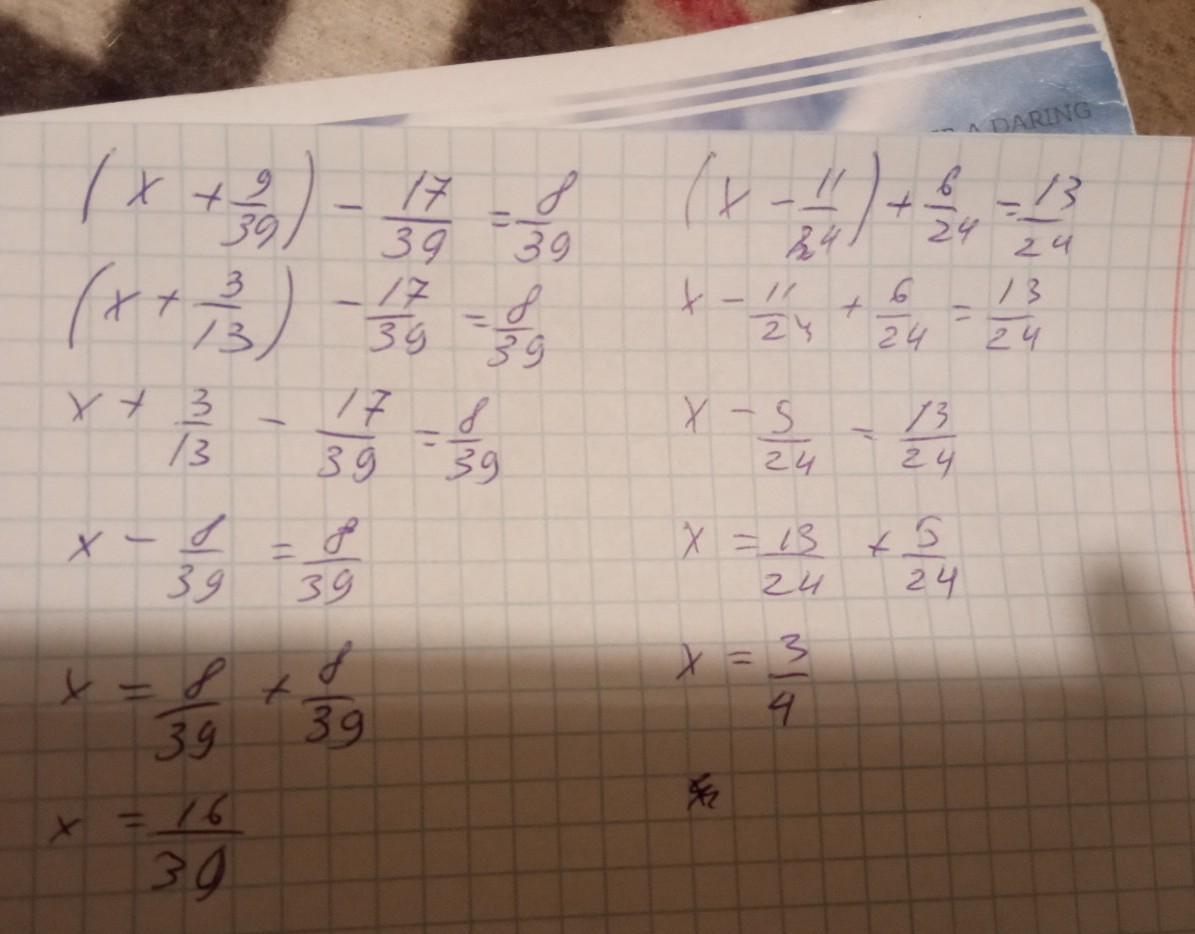 A DARING
(x + 9/39) - 17/39 = 8/39
(x + 3/13) - 17/39 = 8/39
x + 3/13 - 17/39 = 8/39
x - 8/39 = 8/39
x = 8/39 + 8/39
x = 16/39
(x - 11/24) + 6/24 = 13/24
x - 11/24 + 6/24 = 13/24
x - 5/24 = 13/24
x = 13/24 + 5/24
x = 3/4